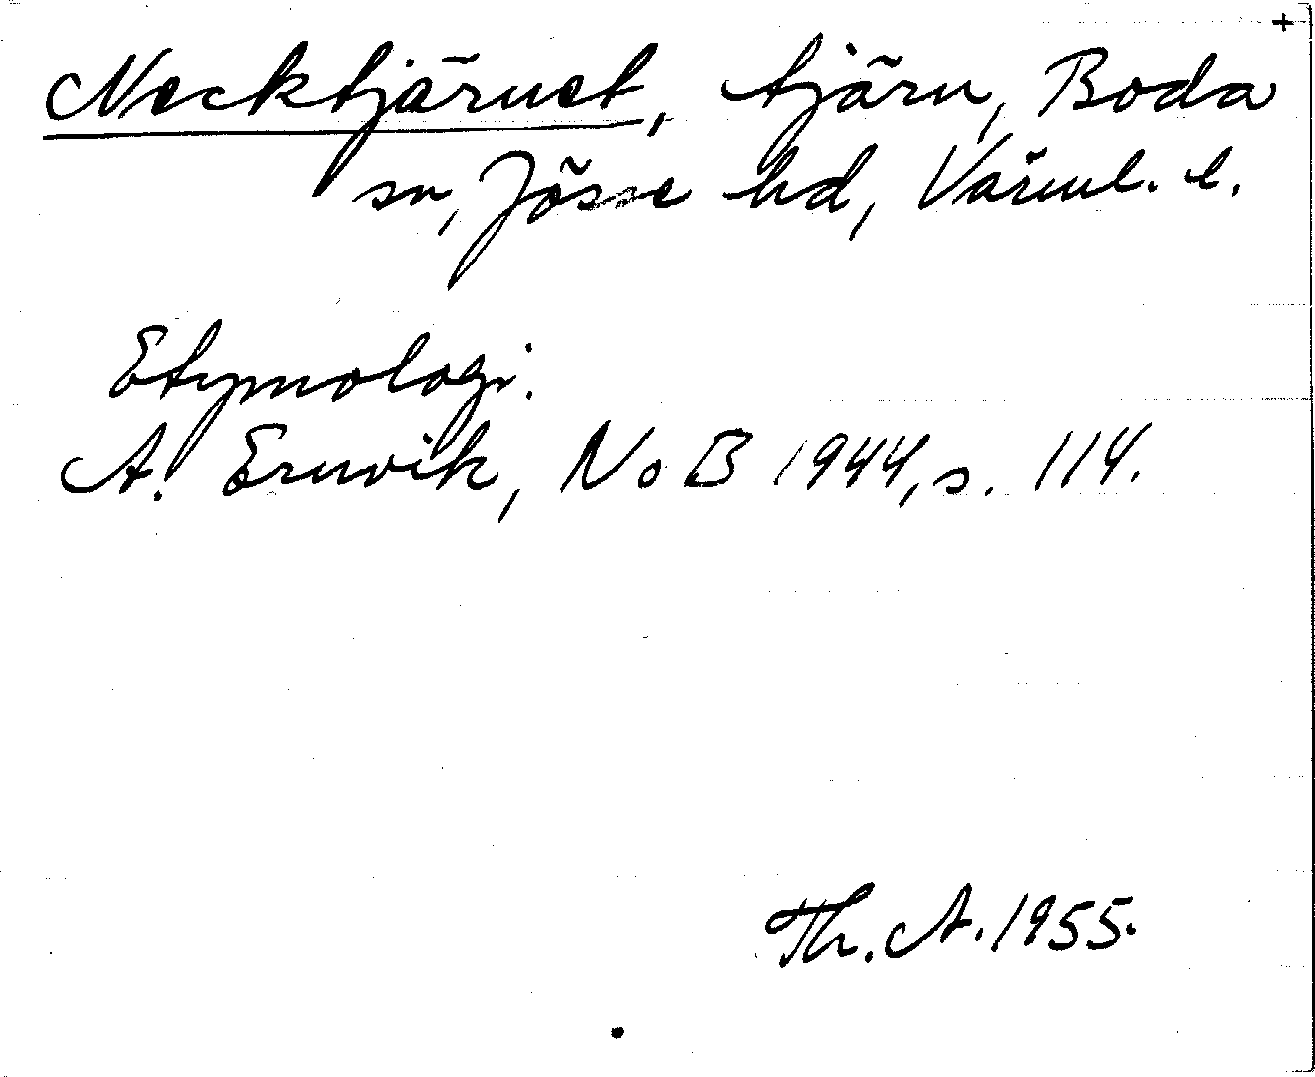 +
Necktjärnet, tjärn, Boda
sn, Jösse hd, Värml. l.
Etymologi.
A. Ernvik, NoB 1944, s. 114.
Th. A. 1955.